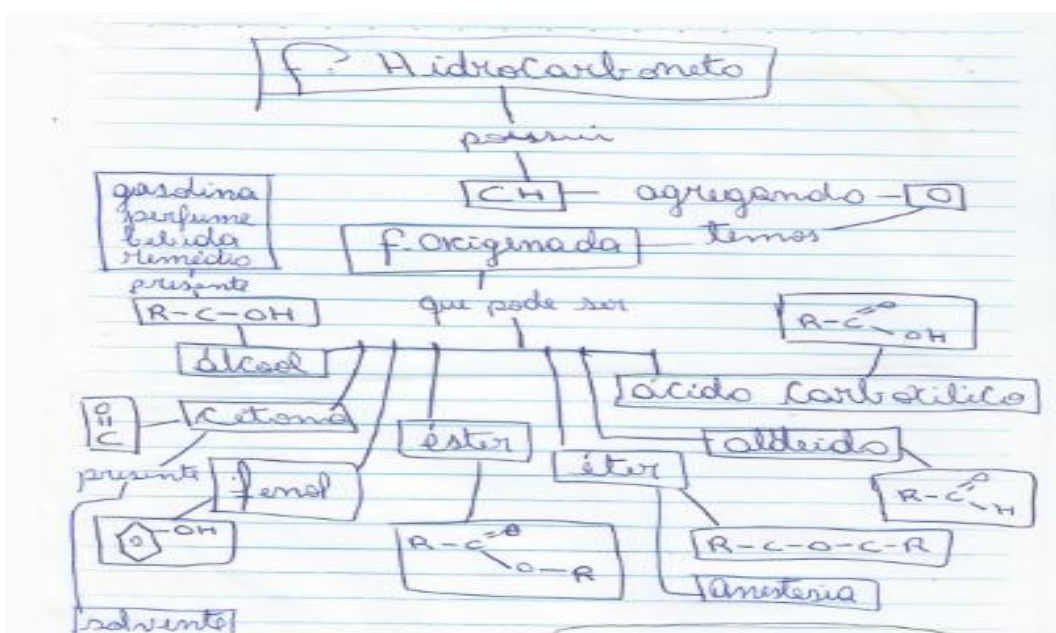 f? Hidrocarboneto
possui
CH — agregando — O
gasolina
perfume
bebida
remédio
f. oxigenada — temos
presente
R-C-OH
que pode ser
R-C=O
OH
álcool
ácido carboxilico
O
||
C
cetona
éster
aldeido
presente
fenol
éter
R-C=O
H
OH
R-C=O
O-R
R-C-O-C-R
anestesia
solvente